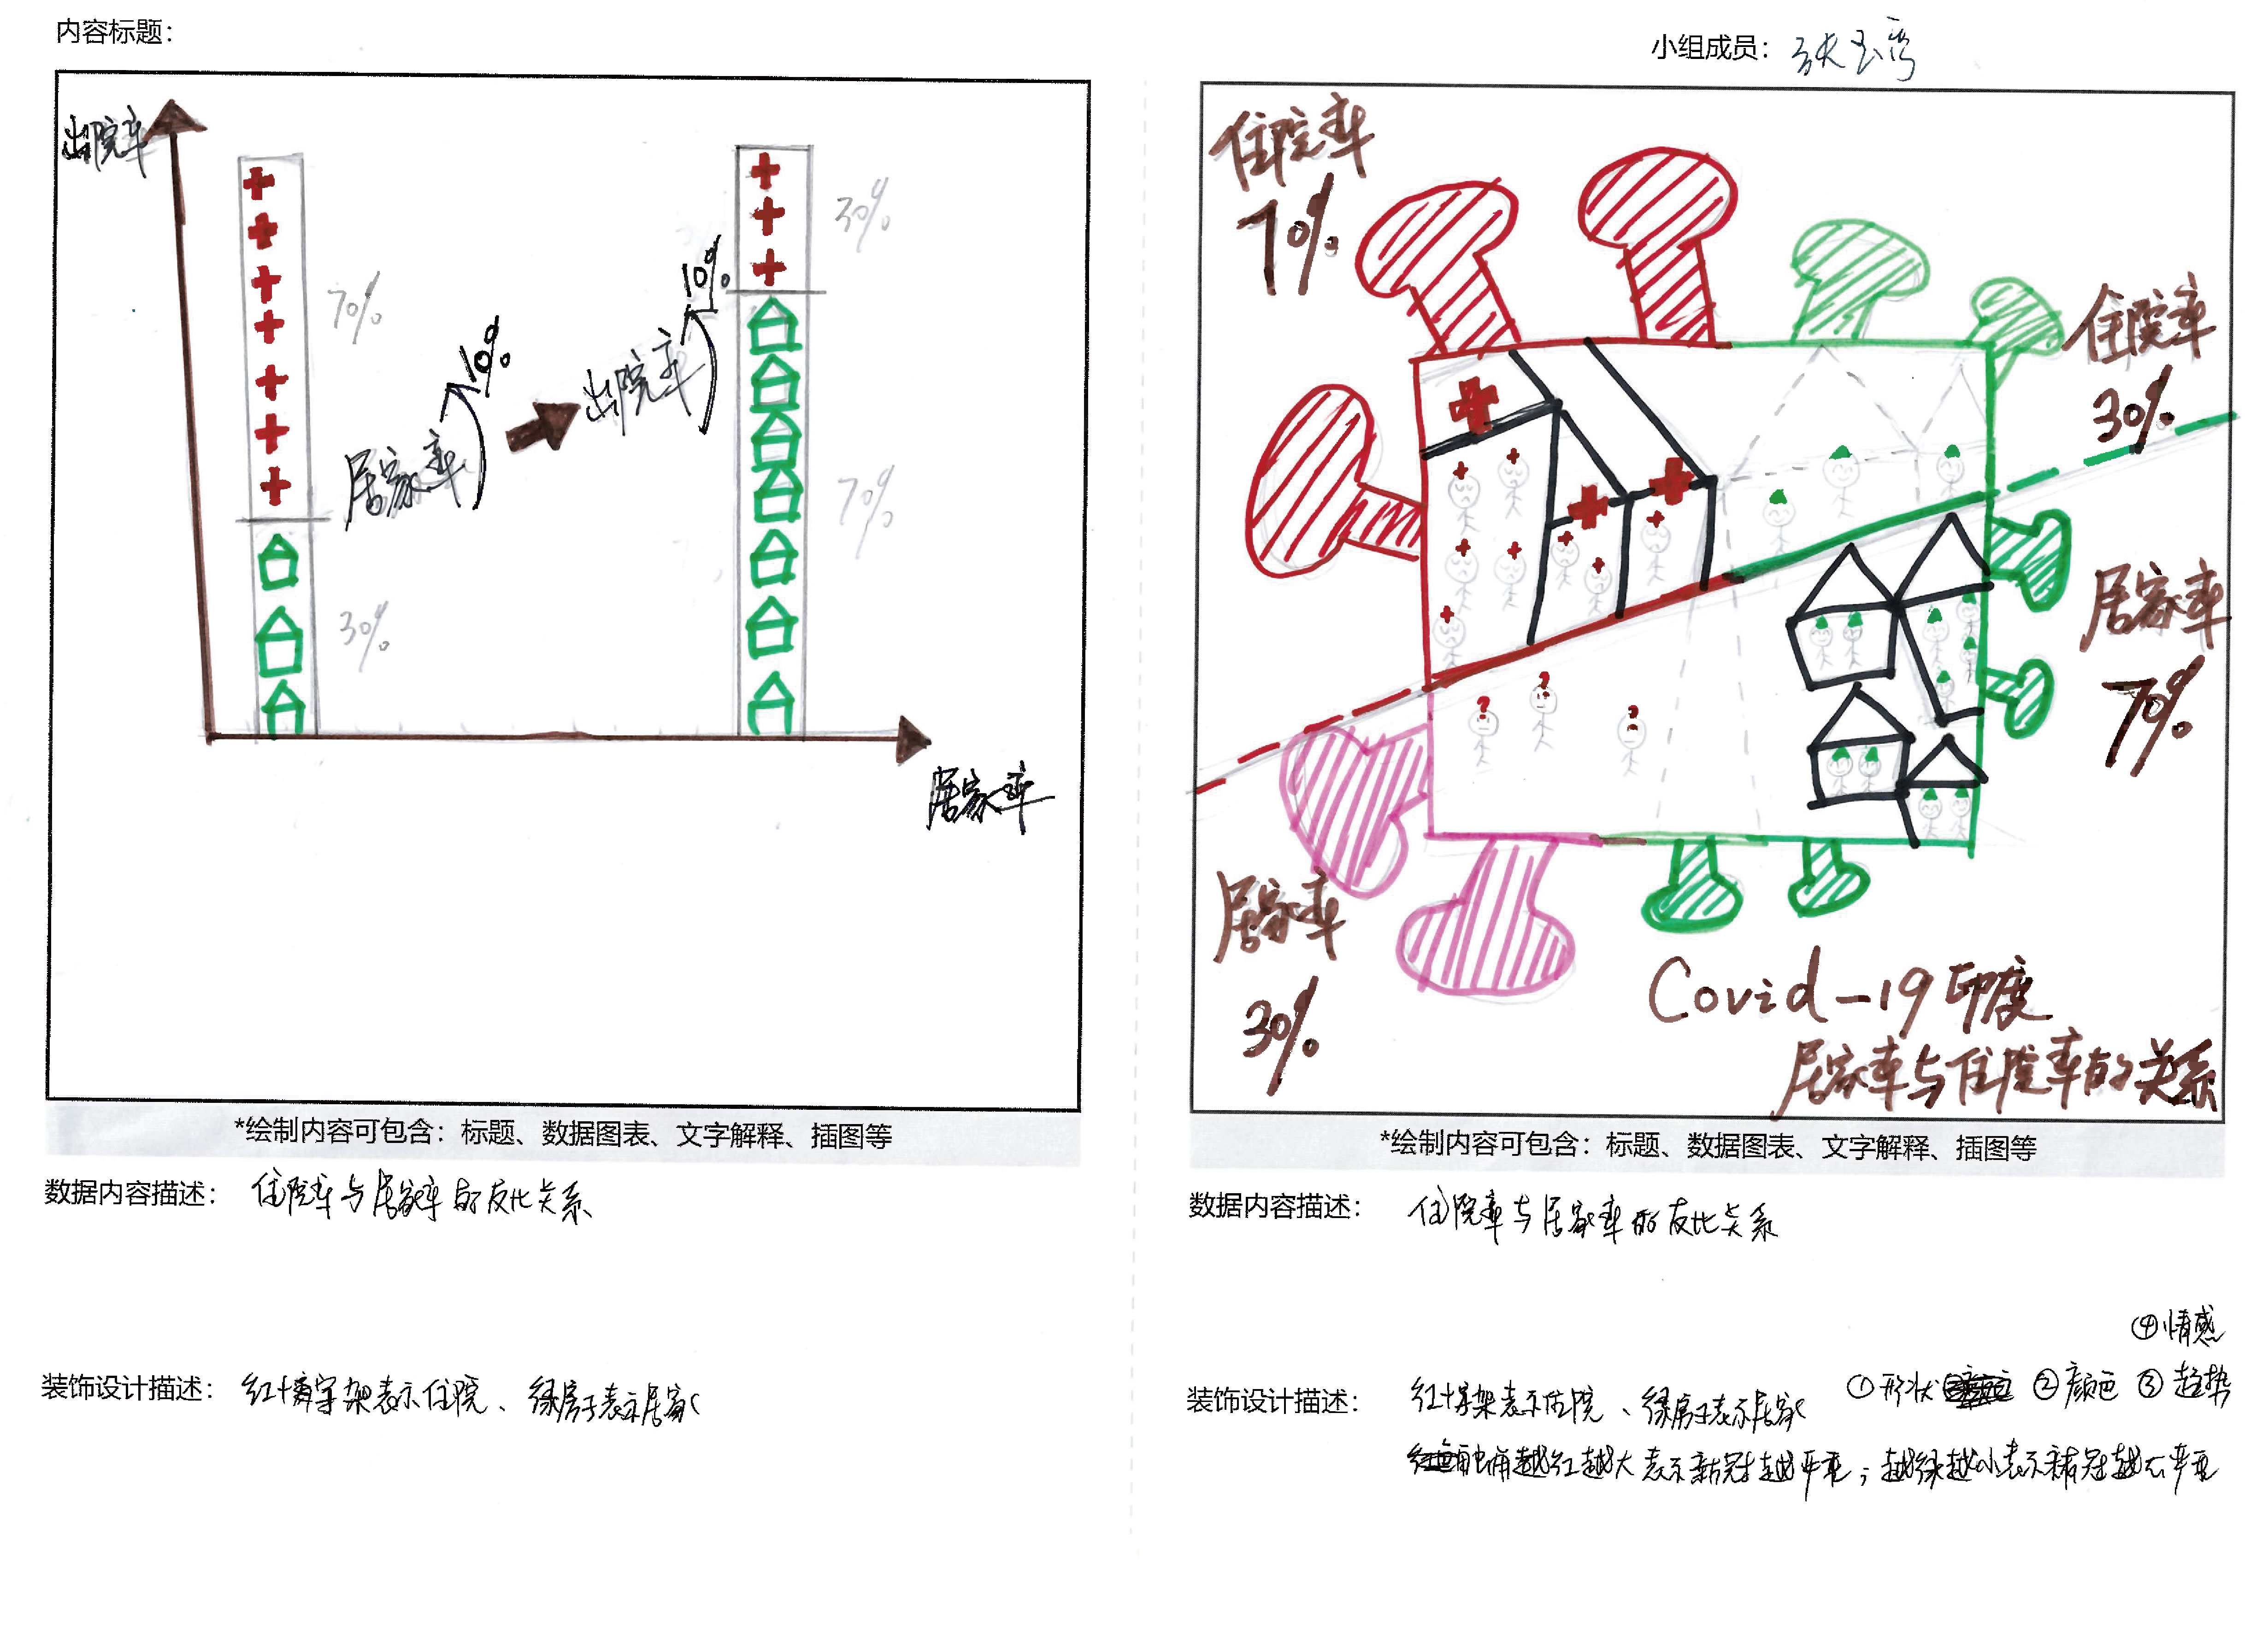 内容标题：
出院率
70%
30%
居家率
10%
出院率
10%
30%
70%
居家率
*绘制内容可包含：标题、数据图表、文字解释、插图等
数据内容描述： 住院率与居家率的反比关系
装饰设计描述： 红十字架表示住院、绿房子表示居家
小组成员：
住院率
70%
住院率
30%
居家率
70%
居家率
30%
Covid-19 印度
居家率与住院率的关系
*绘制内容可包含：标题、数据图表、文字解释、插图等
数据内容描述： 住院率与居家率的反比关系
④情感
①形状 ②颜色 ③趋势
装饰设计描述： 红十字架表示住院、绿房子表示居家
越红越大表示新冠越严重；越绿越小表示新冠越不严重